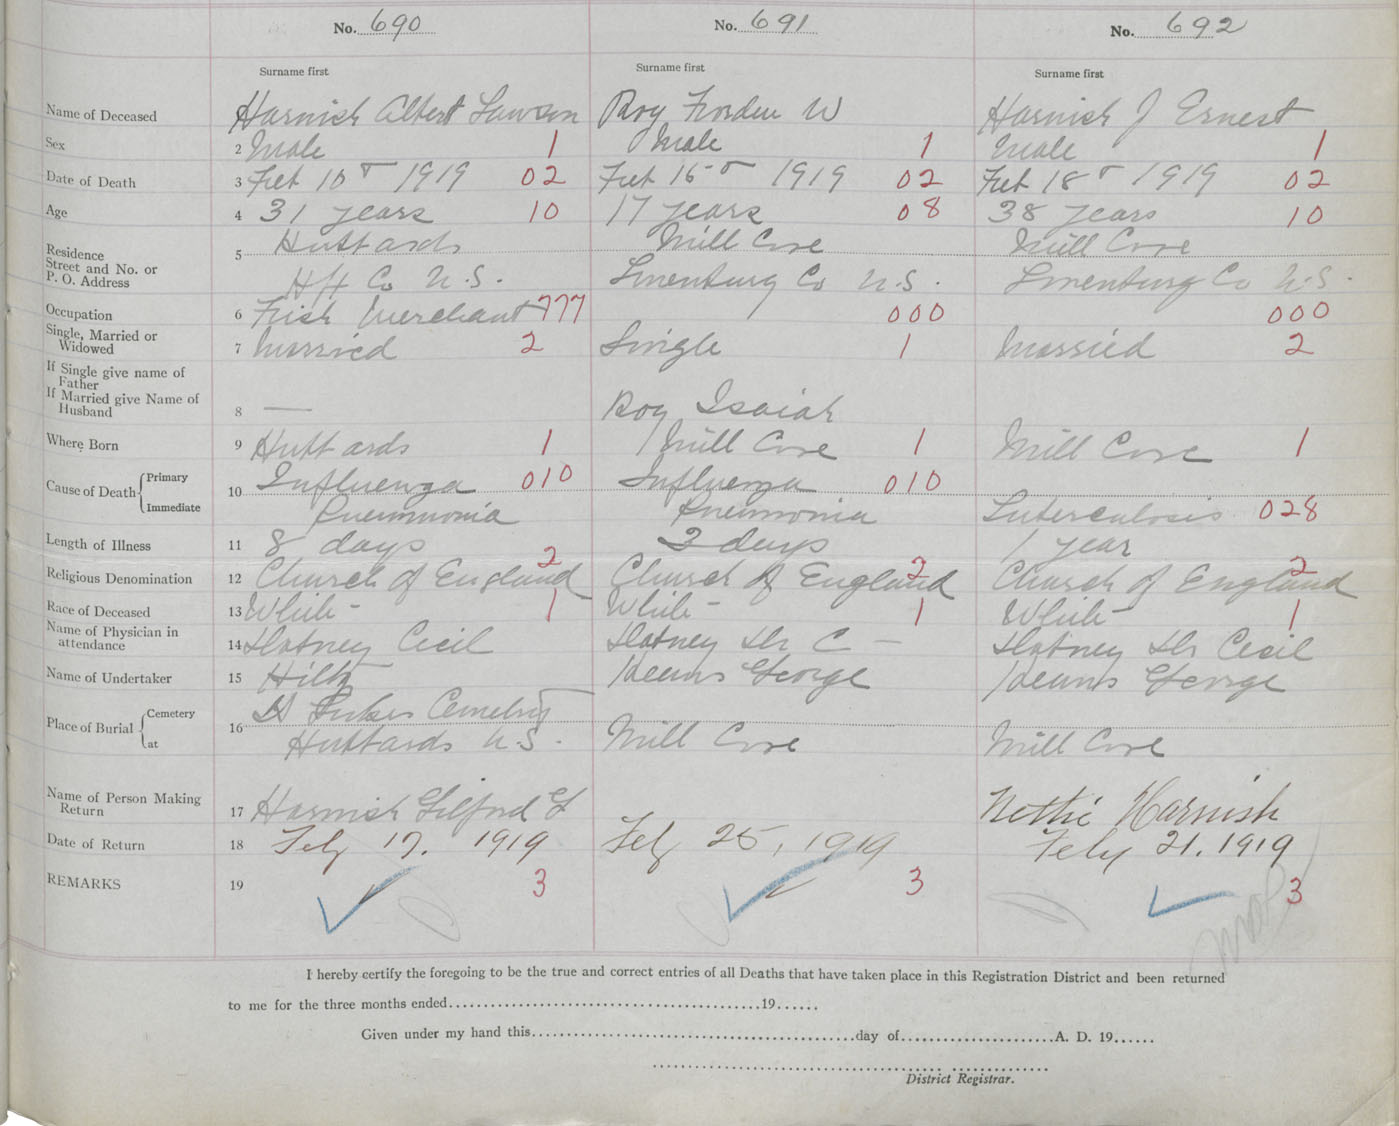 No. 690 No. 691 No. 692
Surname first Surname first Surname first
Name of Deceased Harnish Albert Lawson Boy Forden W Harnish J Ernest
Sex 2 Male 1 Male 1 Male 1
Date of Death 3 Feb 10 1919 02 Feb 15 1919 02 Feb 18 1919 02
Age 4 31 years 10 17 years 08 38 years 10
Residence 5 Hubbards Mill Cove Mill Cove
Street and No. or
P. O. Address Hfx Co N.S. Lunenburg Co N.S. Lunenburg Co N.S.
Occupation 6 Fish Merchant 777 000 000
Single, Married or
Widowed 7 Married 2 Single 1 Married 2
If Single give name of
Father
If Married give Name of
Husband 8 — Boy Isaiah
Where Born 9 Hubbards 1 Mill Cove 1 Mill Cove 1
Cause of Death Primary 10 Influenza 010 Influenza 010
Immediate Pneumonia Pneumonia Tuberculosis 028
Length of Illness 11 8 days 3 days 1 year
Religious Denomination 12 Church of England 2 Church of England 2 Church of England 2
Race of Deceased 13 White 1 White 1 White 1
Name of Physician in
attendance 14 Cecil Dr C — Dr Cecil
Name of Undertaker 15 Hiltz George George
Place of Burial Cemetery 16 St Lukes Cemetery
at Hubbards N.S. Mill Cove Mill Cove
Name of Person Making
Return 17 Harnish Gilford G Nettie Harnish
Date of Return 18 Feby 17. 1919 Feby 25, 1919 Feby 21. 1919
REMARKS 19 3 3 3
I hereby certify the foregoing to be the true and correct entries of all Deaths that have taken place in this Registration District and been returned
to me for the three months ended 19
Given under my hand this day of A. D. 19
District Registrar.